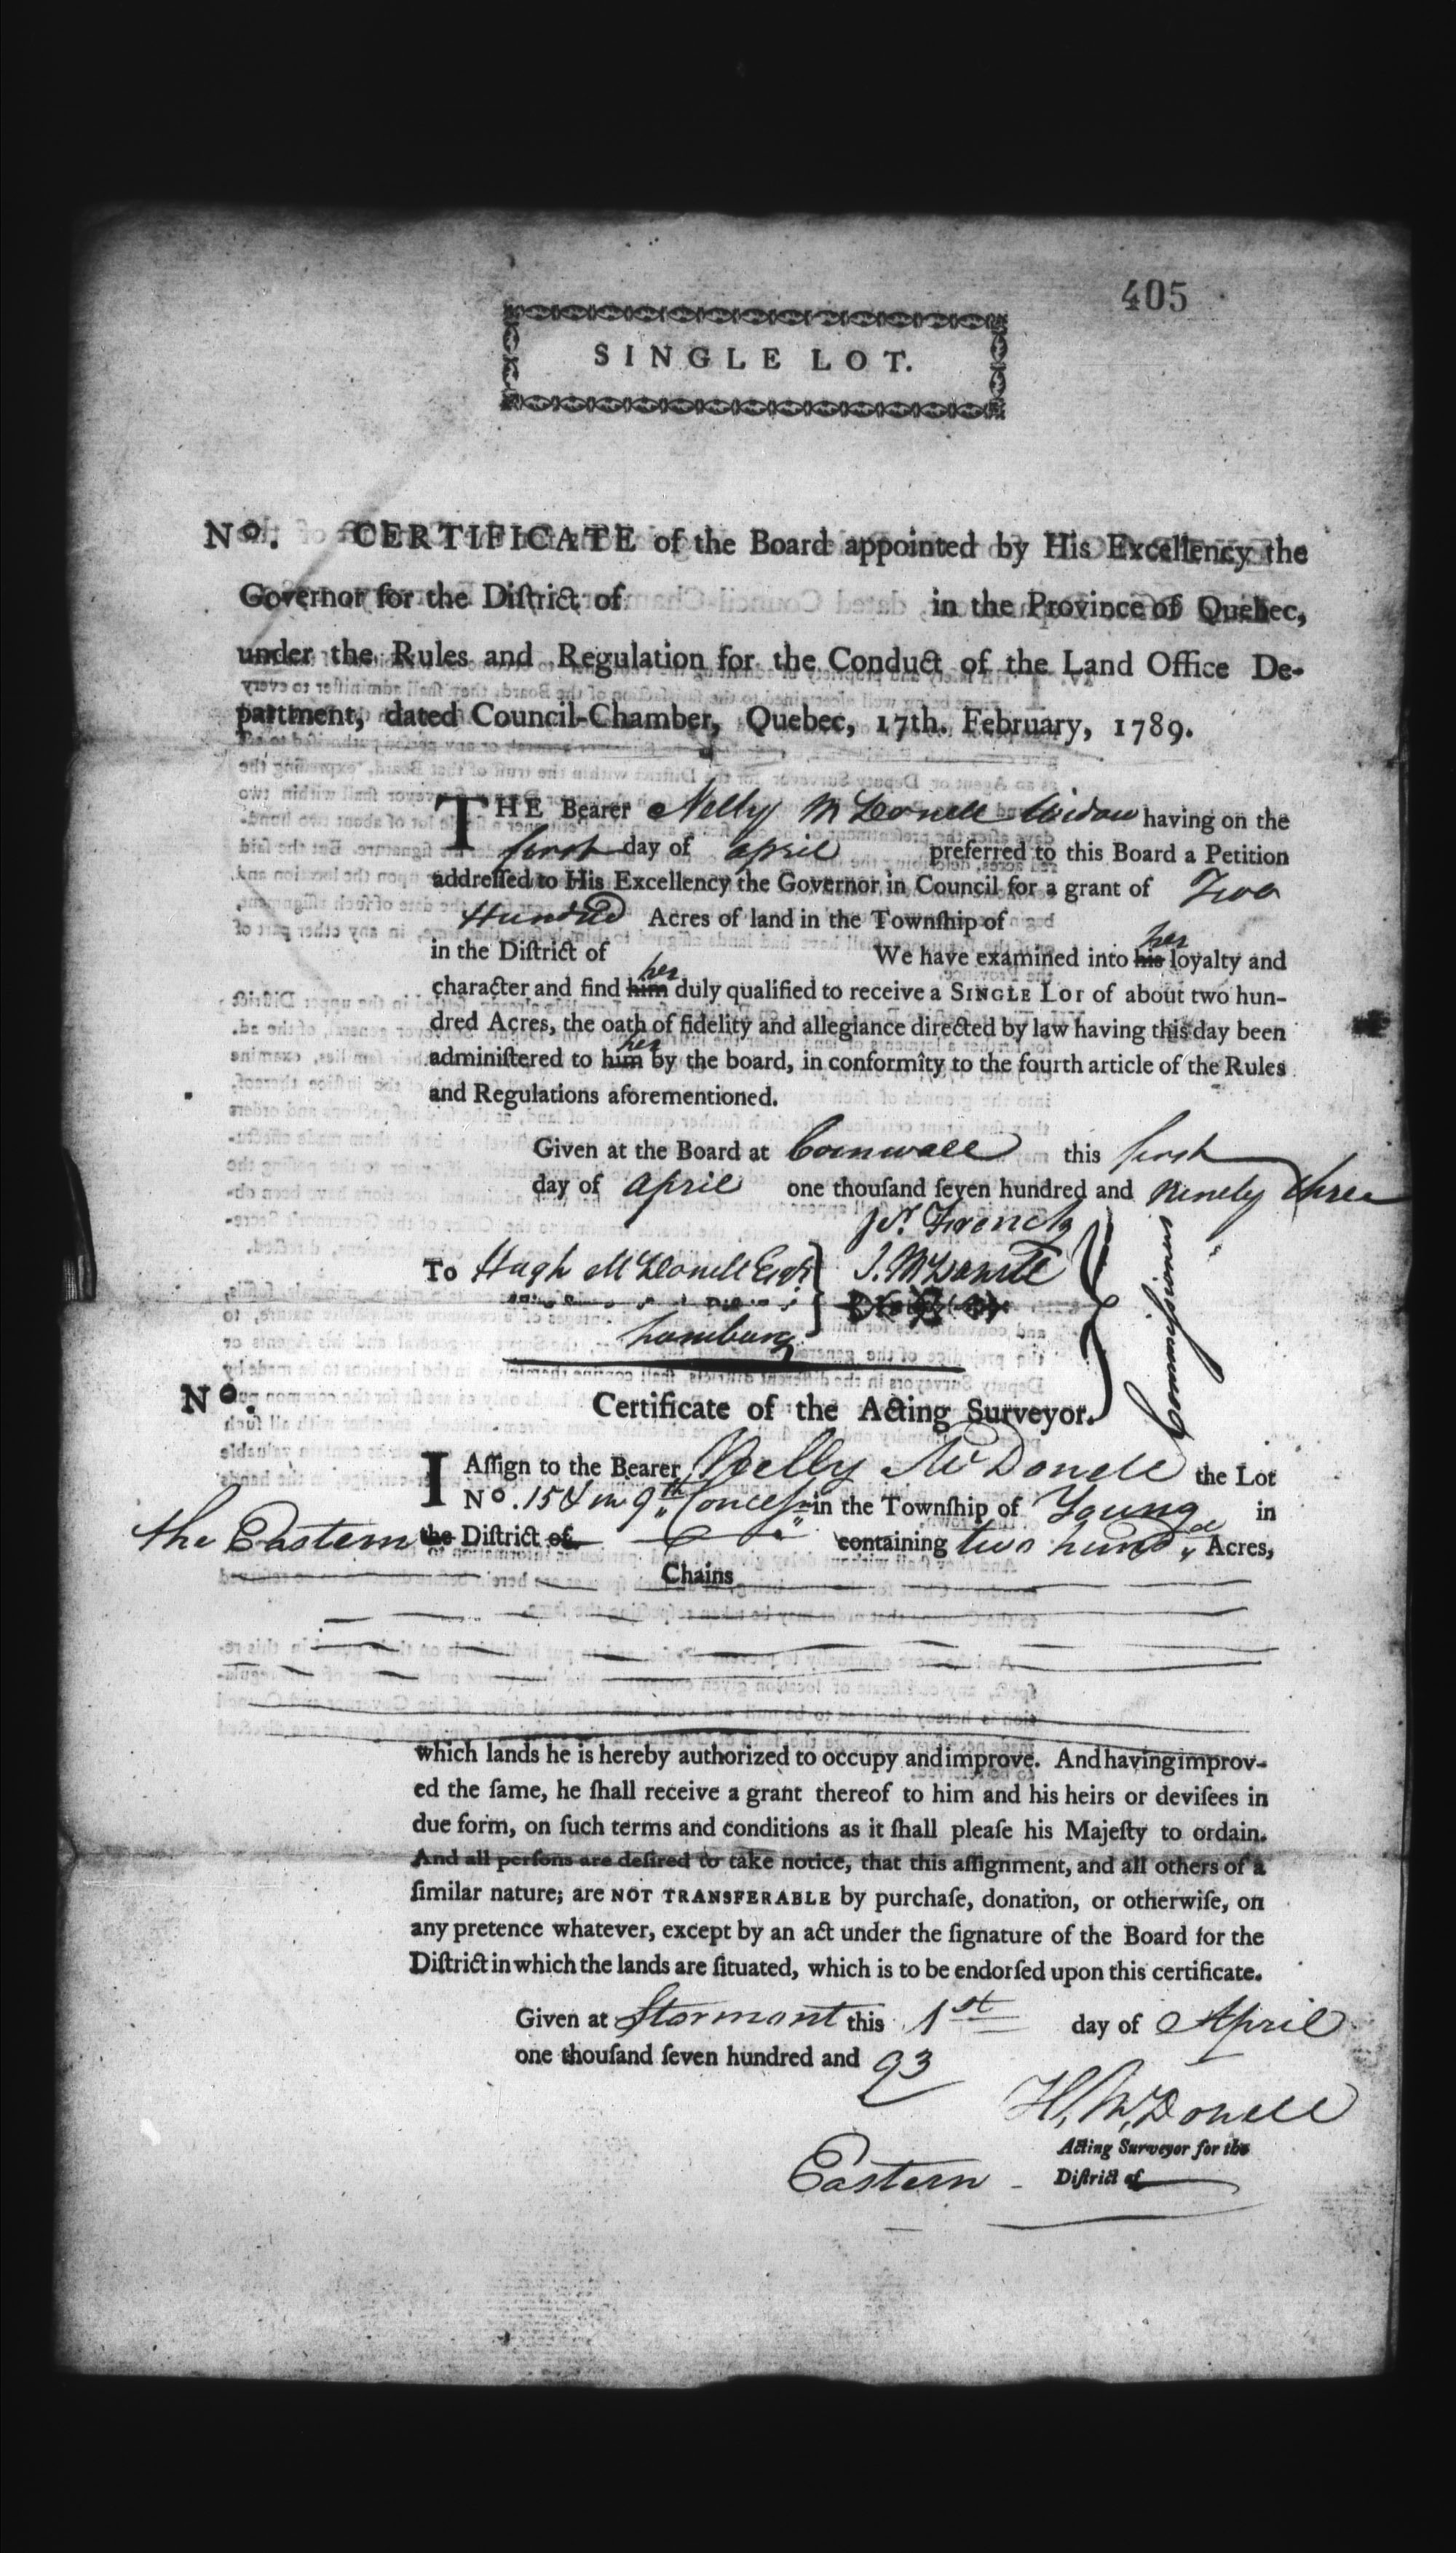 405
SINGLE LOT.
No. CERTIFICATE of the Board appointed by His Excellency the
Governor for the Diſtrict of in the Province of Quebec,
under the Rules and Regulation for the Conduct of the Land Office De-
partment, dated Council-Chamber, Quebec, 17th. February, 1789.
THE Bearer Nelly McDonell Widow having on the
first day of april preferred to this Board a Petition
addreſſed to His Excellency the Governor in Council for a grant of Two
Hundred Acres of land in the Townſhip of
her
in the Diſtrict of We have examined into his loyalty and
her
character and find him duly qualified to receive a SINGLE LOT of about two hun-
dred Acres, the oath of fidelity and allegiance directed by law having this day been
her
adminiſtered to him by the board, in conformity to the fourth article of the Rules
and Regulations aforementioned.
Given at the Board at Cornwall this first
day of april one thouſand ſeven hundred and ninety three
French
To Hugh McDonell Esqr J. McDonell
Commissioners
No.
Certificate of the Acting Surveyor.
I Aſſign to the Bearer Nelly McDonell the Lot
No. 15 in 9th Concesn in the Townſhip of Young in
the Eastern the Diſtrict of containing two hundd Acres,
Chains
which lands he is hereby authorized to occupy and improve. And having improv-
ed the ſame, he ſhall receive a grant thereof to him and his heirs or deviſees in
due form, on ſuch terms and conditions as it ſhall pleaſe his Majeſty to ordain.
And all perſons are deſired to take notice, that this aſſignment, and all others of a
ſimilar nature; are NOT TRANSFERABLE by purchaſe, donation, or otherwiſe, on
any pretence whatever, except by an act under the ſignature of the Board for the
Diſtrict in which the lands are ſituated, which is to be endorſed upon this certificate.
Given at Stormont this 1st day of April
one thouſand ſeven hundred and 93
H. McDonell
Acting Surveyor for the
Eastern - Diſtrict of